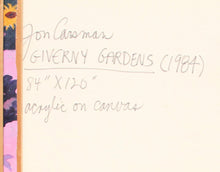 Jon Carsman
GIVERNY GARDENS (1984)
84" X 120"
acrylic on canvas